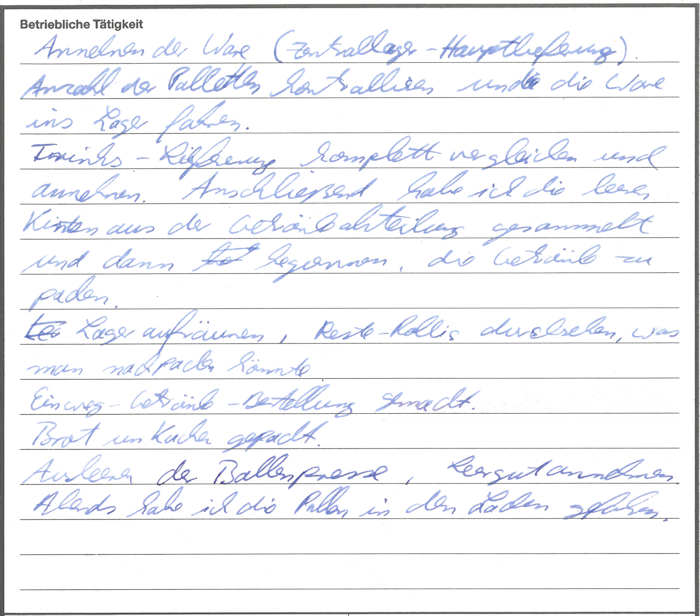 Betriebliche Tätigkeit
Annehmen der Ware (Zentrallager-Hauptlieferung).
Anzahl der Palletten kontrollieren und die Ware
ins Lager fahren.
Trinks-Lieferung komplett vergleichen und
annehmen. Anschließend habe ich die leeren
Kisten aus der Getränkeabteilung gesammelt
und dann begonnen, die Getränke zu
packen.
Lager aufräumen, Reste-Rollis durchsehen, was
man nachpacken könnte
Einweg-Getränke-Bestellung gemacht.
Brot un Kuchen gepackt.
Ausleeren der Ballenpresse, Leergut annehmen.
Abends habe ich die in den Laden gefahren.